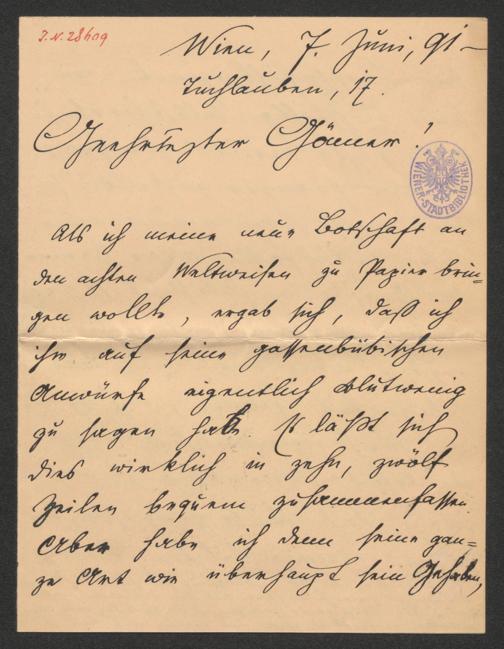 J.N. 28609
Wien, 7. Juni, 91 –
Tuchlauben, 17.
Geehrtester Gönner!
WIENER-STADTBIBLIOTHEK
Als ich meine neue Botschaft an
den achten Weltweisen zu Papier brin-
gen wollte, ergab sich, daß ich
ihm auf seine gassenbübischen
Anwürfe eigentlich blutwenig
zu sagen hab. Es läßt sich
dies wirklich in zehn, zwölf
Zeilen bequem zusammenfassen.
Aber habe ich denn seine gan-
ze Art wie überhaupt sein Gehaben,